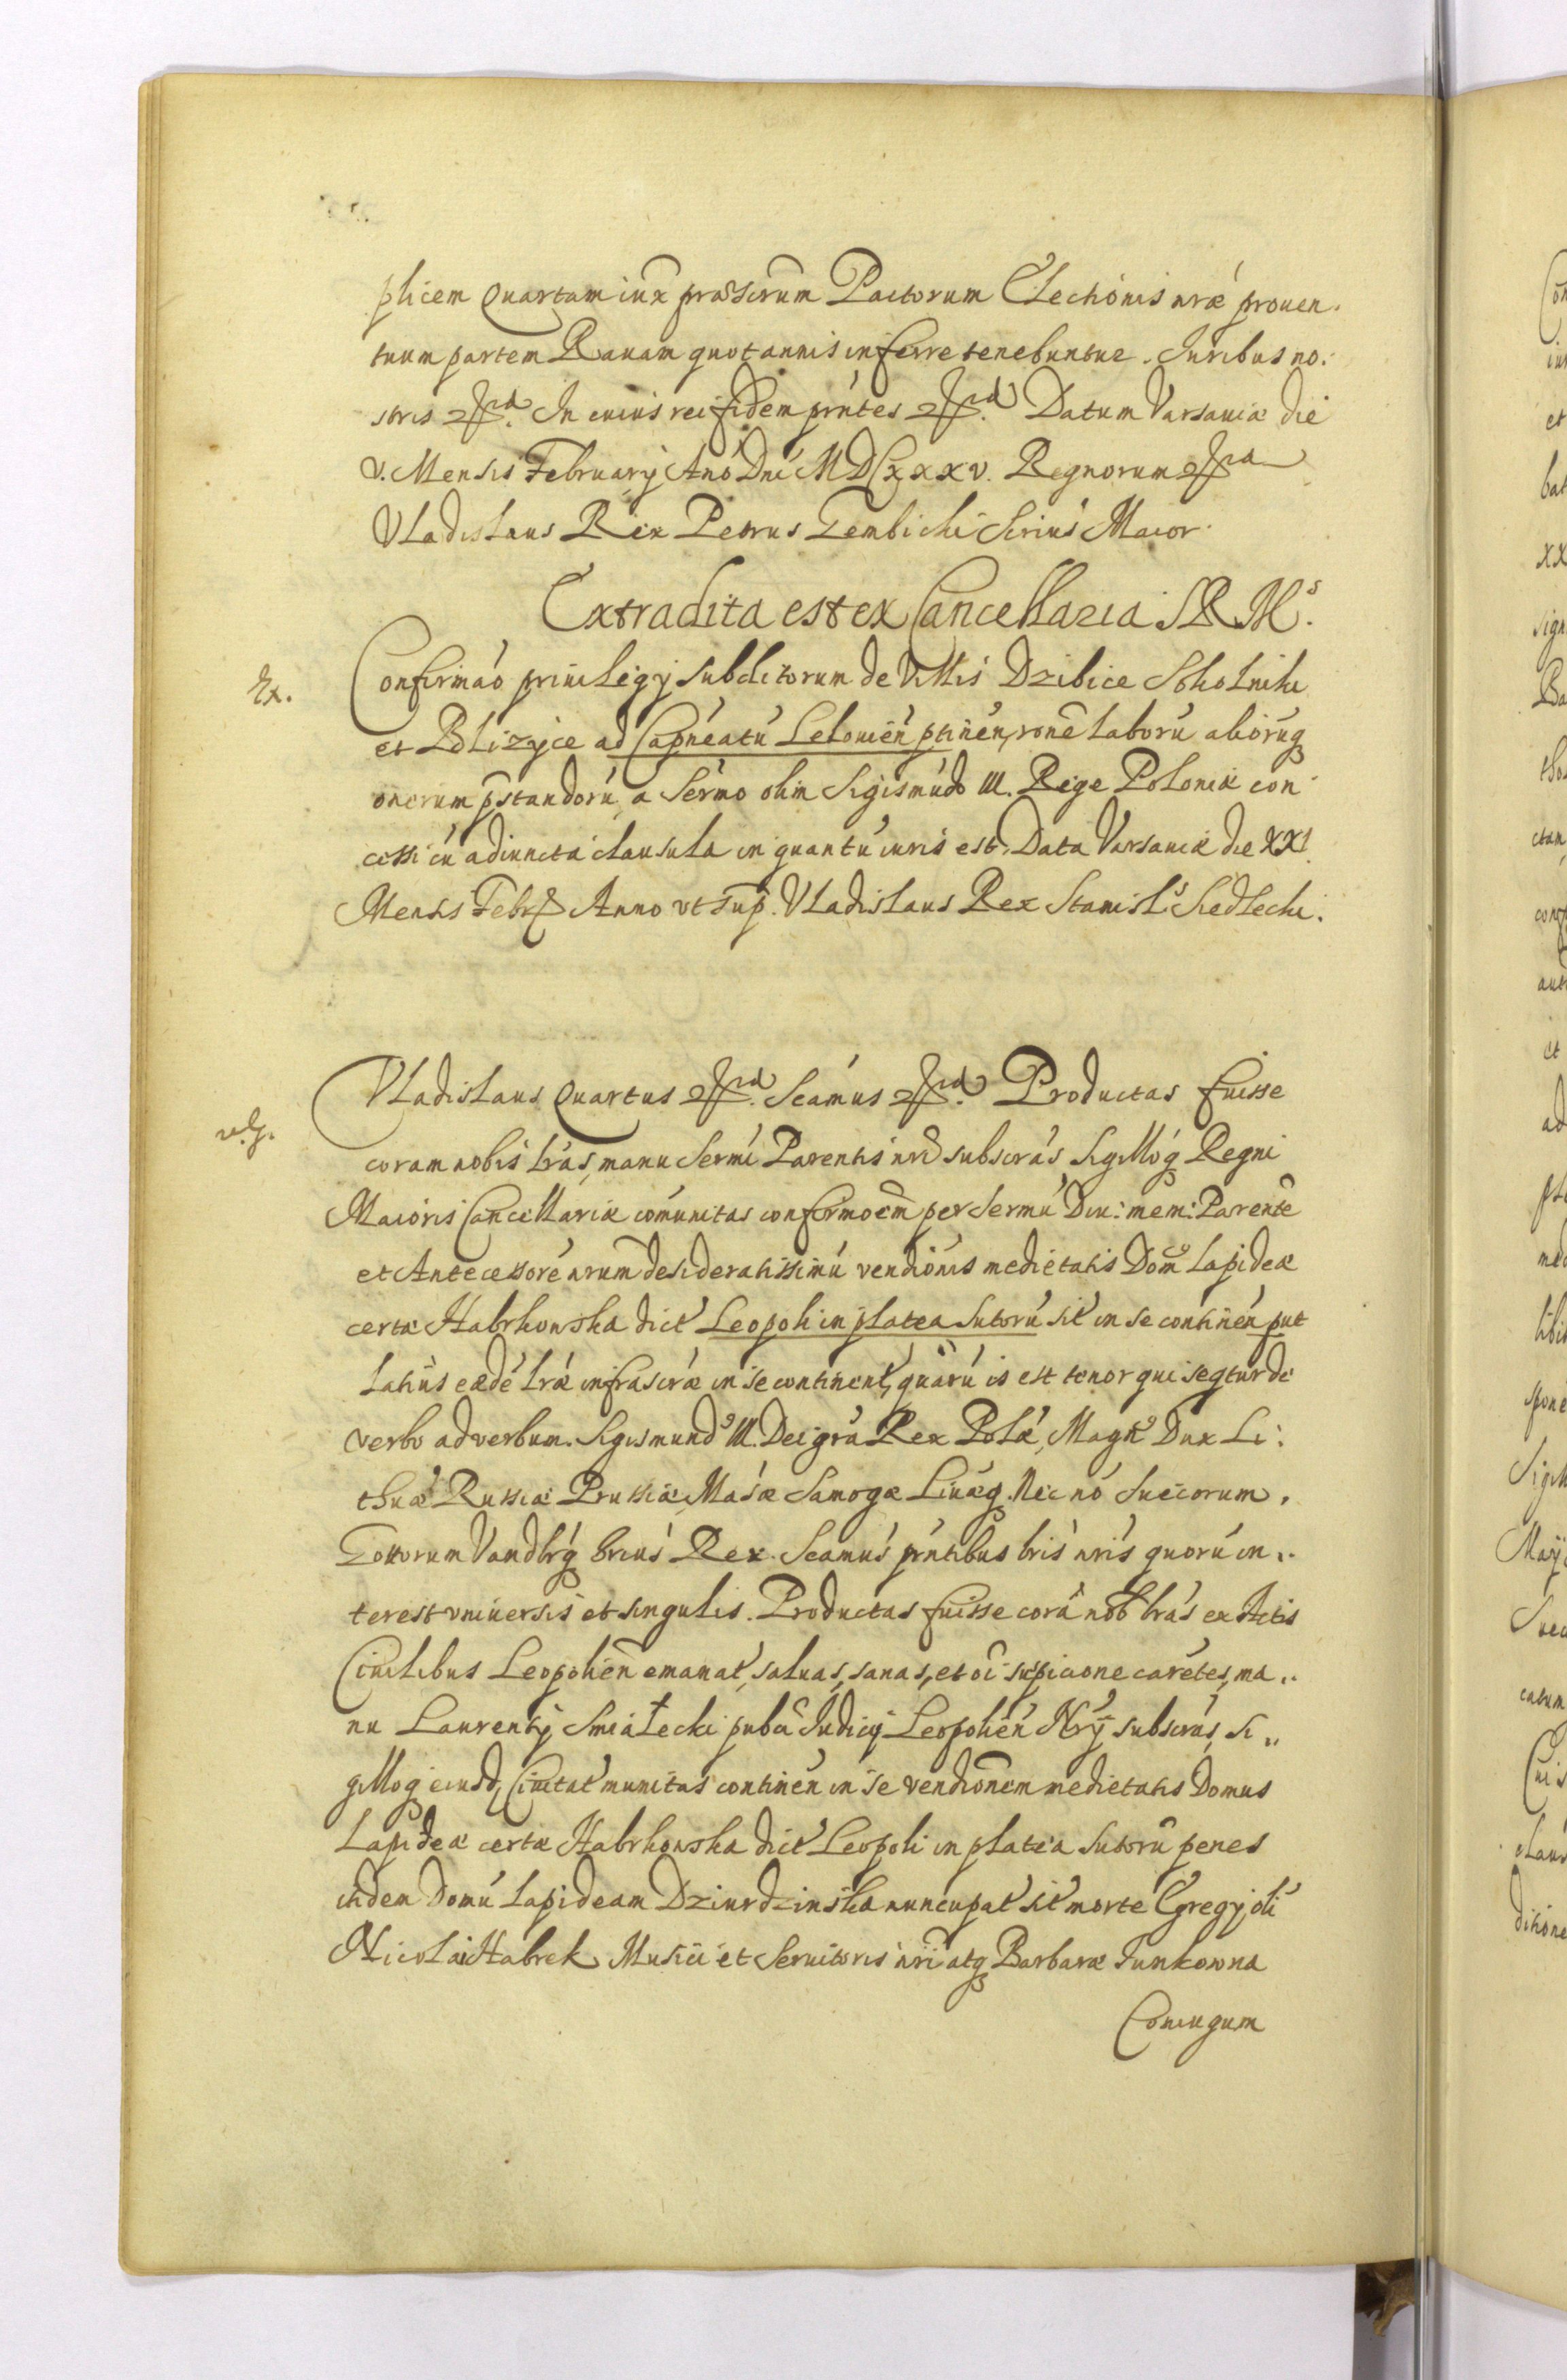 plicem Quartam iux̄ præscrũm Pactorum Electionis nræ prouen.
tuum partem Rauam quotannis inferre tenebuntur. Iuribus no:
stris etc. In cuius rei fidem pr̄ntes etc. Datum Varsauiæ die
V. Mensis February Ano Dni MDCxxxv. Regnorum etc.
Vladislaus Rex Petrus Gembicki Scrius Maior.
Extradita est ex Cancellaria S R Mˢ.
Ex. Confirmaō priuilegÿ subditorum de Villis Dzibice Skolniki
et Blizÿce ad Capneatũ Lelouieñ ptineñ, rone laborũ aliorũq
onerum p̄standorũ, a Sermo olim Sigismũdo III. Rege Poloniæ con
cessi cũ adiuncta clausula in quantũ iuris est. Data Varsauiæ die XXI
Mensis Febr Anno vt sup. Vladislaus Rex Stanislˢ Siedlecki.
Vladislaus Quartus etc. Seamus etc. Productas fuisse
coram nobis lr̄as, manu Sermi Parentis nri subscras Sigilloq Regni
Maioris Cancellariæ comunitas confirmoem per Sermũ Diu: mem: Parente
et Antecessore nrum desideratissimũ vendionis medietatis Dom Lapideæ
certæ Habrkowska dict Leopoli in platea Sutorũ sit in se contineñ put
latius eædẽ lræ infrascræ in se continent, quarũ is est tenor qui seqtur de
verbo ad verbum. Sigismundˀ III. Dei gra Rex Polæ, Magˀ Dux Li:
thuæ Russiæ Prussiæ, Masæ Samogæ Liuæq. Nec nõ Suecorum.
Gottorum Vandlrq hrius Rex. Seamus pr̄ntibus lris nris quorũ in..
terest vniuersis et singulis. Productas fuisse corã nob lras ex Actis
Ciuilibus Leopolieñ emanat, saluas, sanas, et oi suspicione carẽtes, ma..
nu Laurentÿ Smiałecki pub Iudicÿ Leopolieñ Nrÿ subscras, Si..
gilloq eiusd, Ciuitat munitas contineñ in se vendionem medietatis Domus
Lapideæ certæ Habrkowska dict Leopoli in platea Sutorũ penes
itidem Domũ Lapideam Dziurdzinska nuncupat sit morte Egregÿ oli
Nicolai Habrek Musici et Seruitoris nri atq Barbaræ Iunkowna
Coniugum